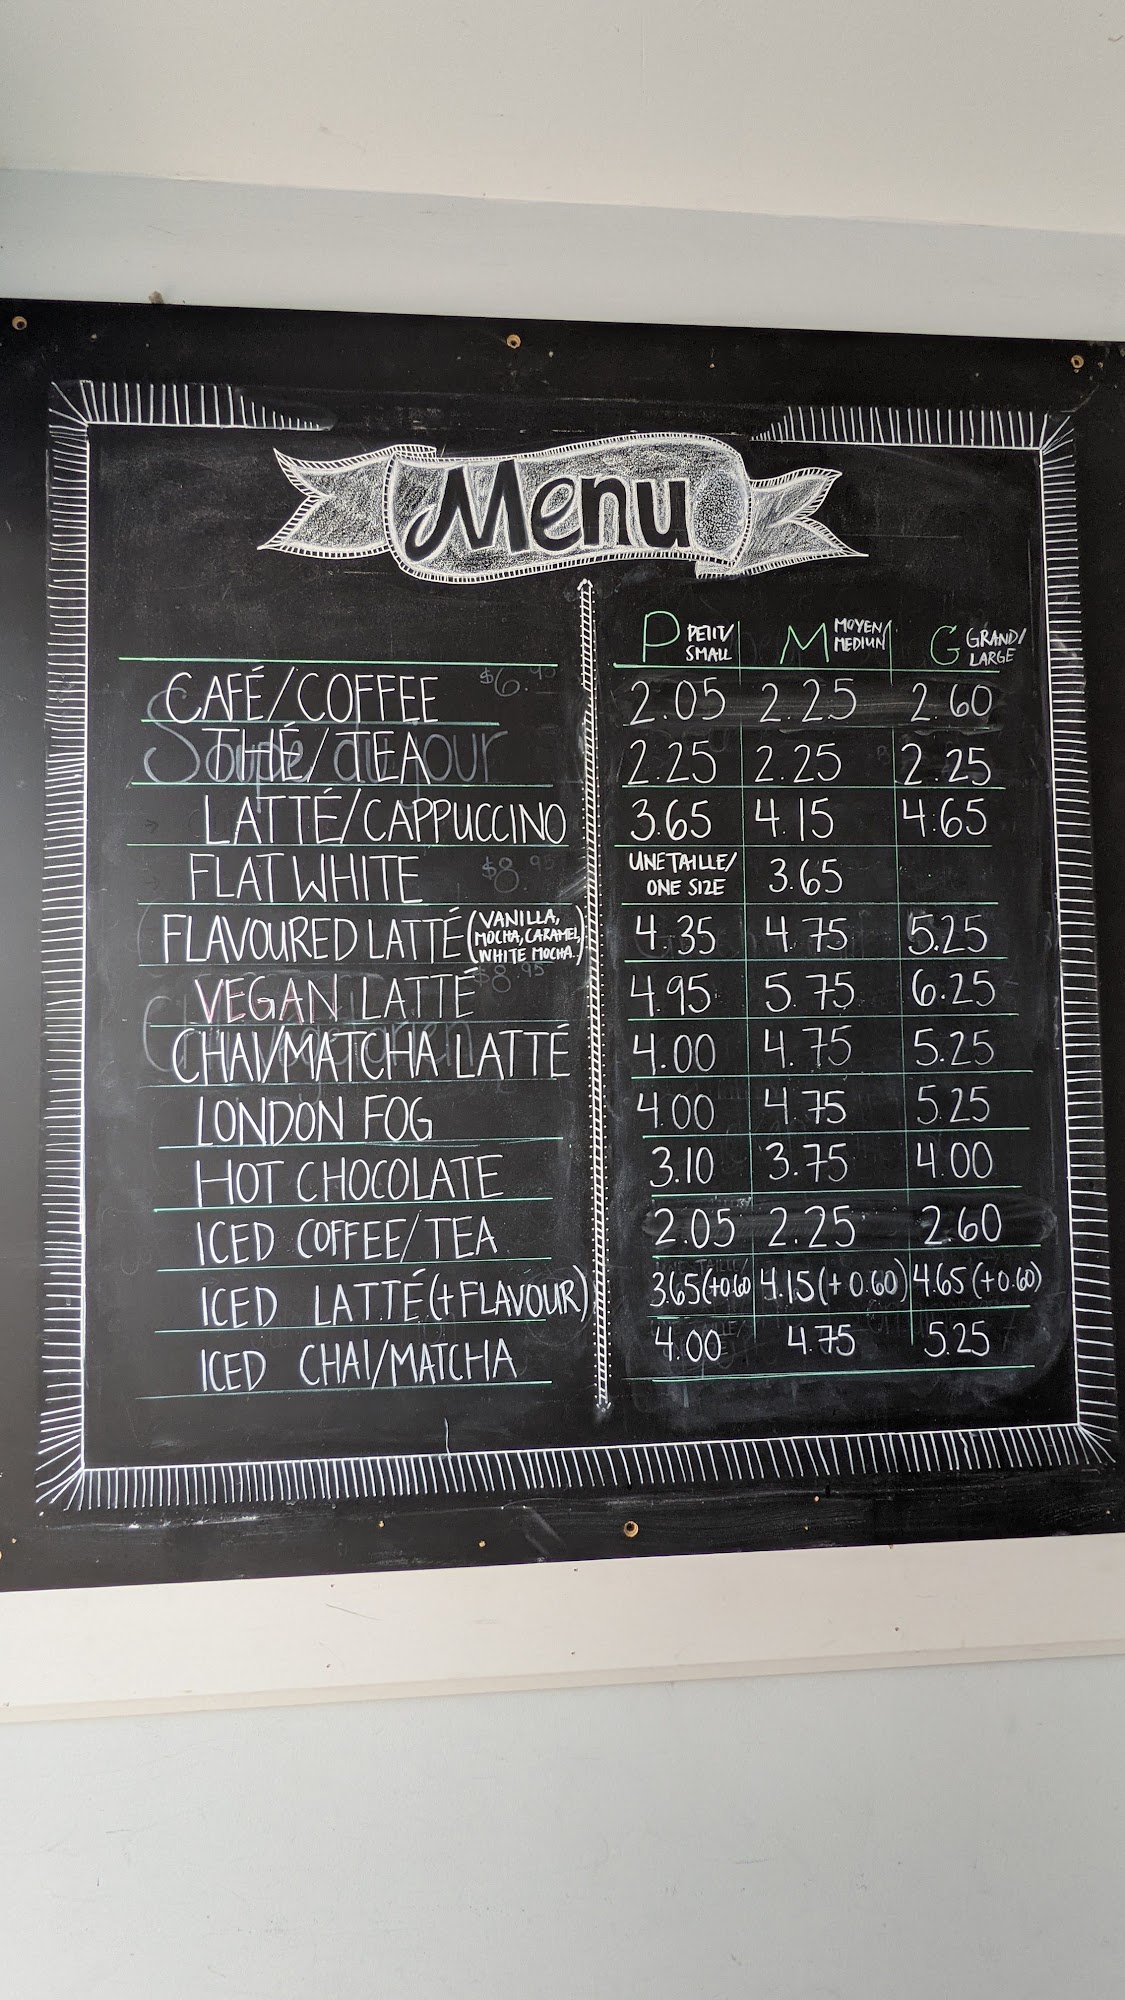 Menu
P PETIT/ SMALL M MOYEN/ MEDIUM G GRAND/ LARGE
CAFÉ/COFFEE 2.05 2.25 2.60
THÉ/TEA 2.25 2.25 2.25
LATTÉ/CAPPUCCINO 3.65 4.15 4.65
FLAT WHITE UNE TAILLE/ ONE SIZE 3.65
FLAVOURED LATTÉ (VANILLA, MOCHA, CARAMEL, WHITE MOCHA.) 4.35 4.75 5.25
VEGAN LATTÉ 4.95 5.75 6.25
CHAI/MATCHA LATTÉ 4.00 4.75 5.25
LONDON FOG 4.00 4.75 5.25
HOT CHOCOLATE 3.10 3.75 4.00
ICED COFFEE/TEA 2.05 2.25 2.60
ICED LATTÉ (+FLAVOUR) 3.65 (+0.60) 4.15 (+0.60) 4.65 (+0.60)
ICED CHAI/MATCHA 4.00 4.75 5.25